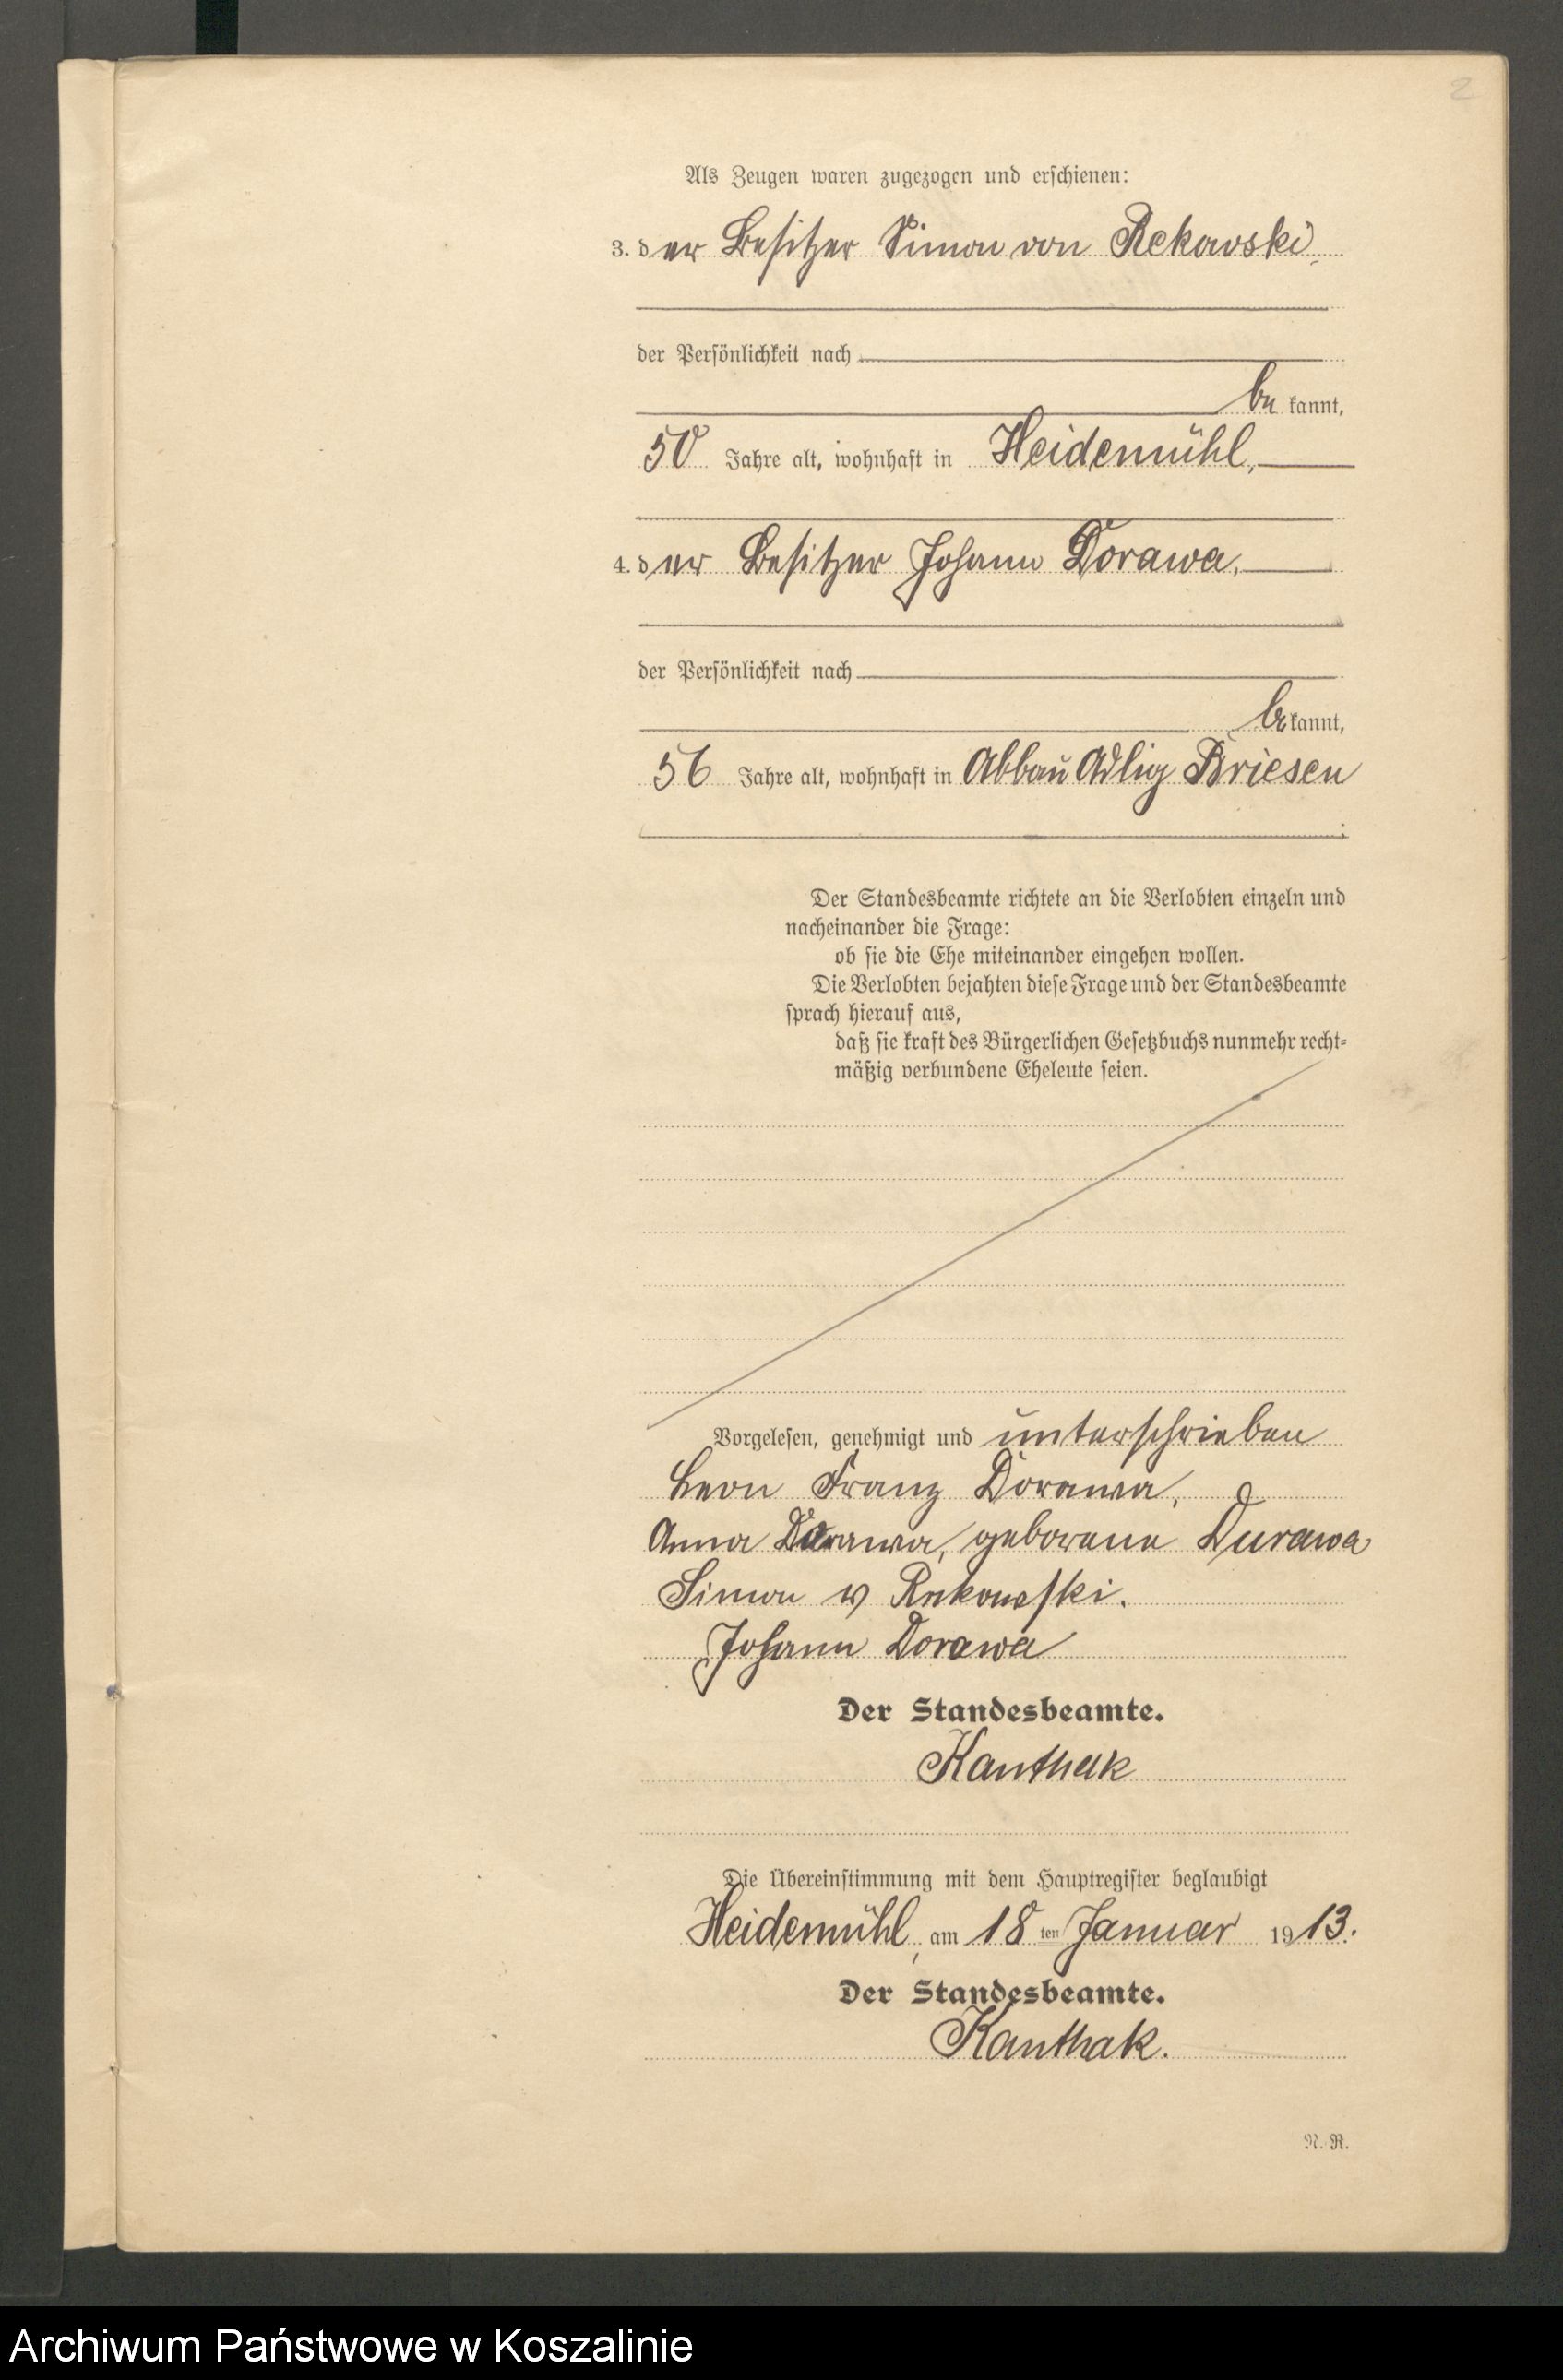 2
Als Zeugen waren zugezogen und erschienen:
3. der Besitzer Simon von Rekowski,
der Persönlichkeit nach
bekannt,
50 Jahre alt, wohnhaft in Heidemühl,
4. der Besitzer Johann Dorawa,
der Persönlichkeit nach
bekannt,
56 Jahre alt, wohnhaft in Abbau Adlig Briesen
;
Der Standesbeamte richtete an die Verlobten einzeln und
nacheinander die Frage:
ob sie die Ehe miteinander eingehen wollen.
Die Verlobten bejahten diese Frage und der Standesbeamte
sprach hierauf aus,
daß sie kraft des Bürgerlichen Gesetzbuchs nunmehr recht-
mäßig verbundene Eheleute seien.
Vorgelesen, genehmigt und unterschrieben
Leon Franz Dorawa,
Anna Dorawa, geborene Durawa
Simon v Rekowski.
Johann Dorawa
Der Standesbeamte.
Kanthak
Die Übereinstimmung mit dem Hauptregister beglaubigt
Heidemühl, am 18ten Januar 1913.
Der Standesbeamte.
Kanthak.
N. R.
Archiwum Państwowe w Koszalinie